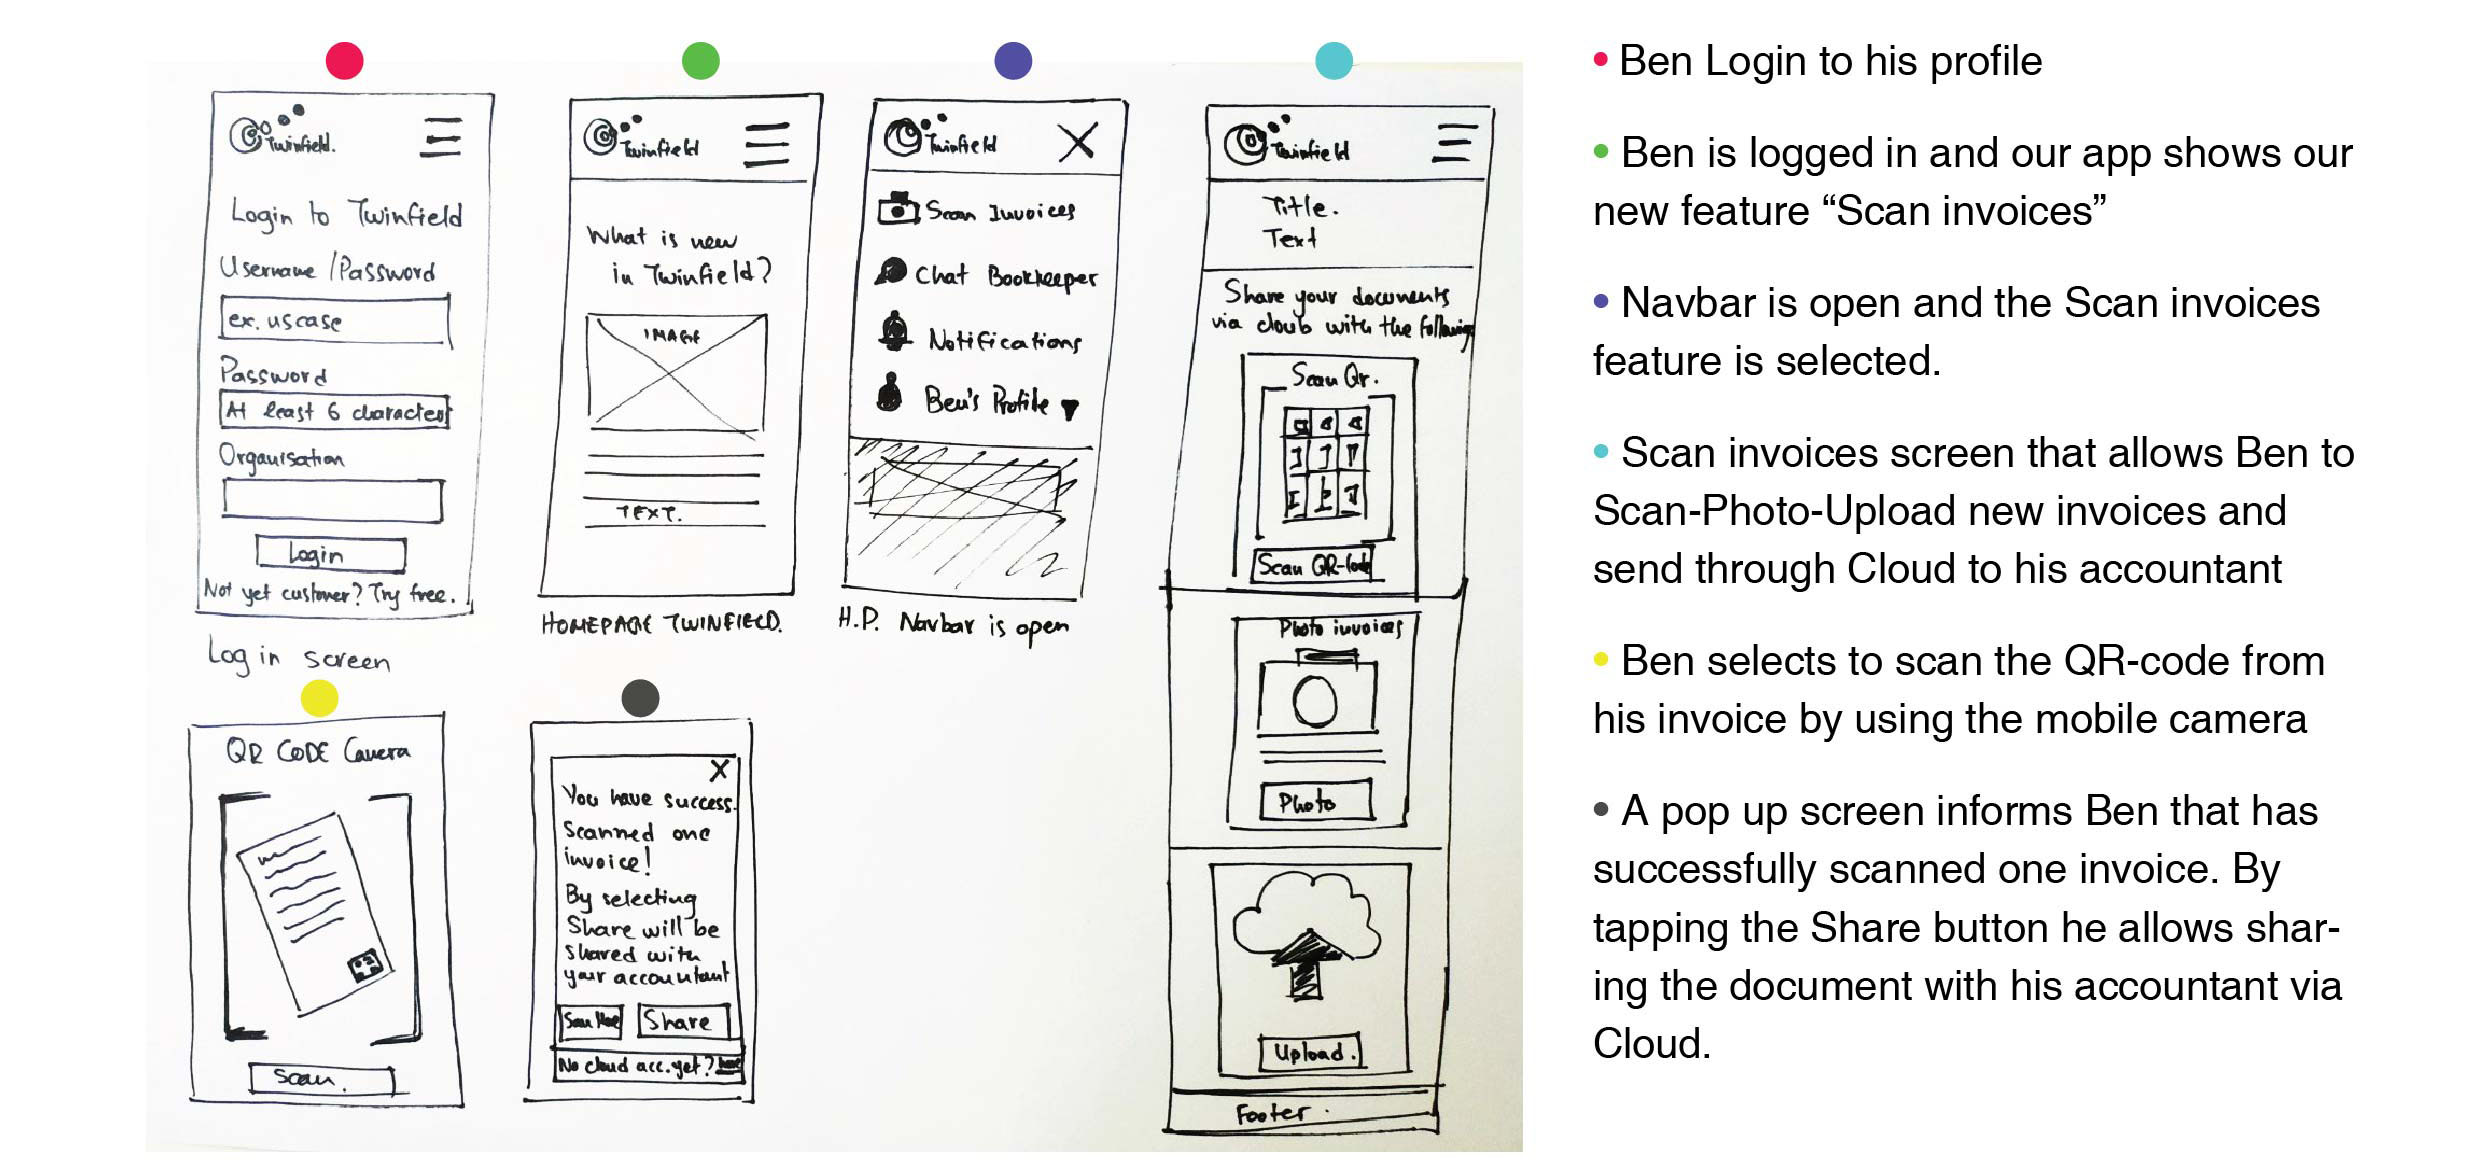 Twinfield.
Login to Twinfield
Username/Password
ex. uscase
Password
At least 6 characters
Organisation
Login
Not yet customer? Try free.
Log in screen
Twinfield
What is new
in Twinfield?
IMAGE
TEXT.
HOMEPAGE TWINFIELD.
Twinfield
Scan Invoices
Chat Bookkeeper
Notifications
Ben's Profile
H.P. Navbar is open
Twinfield
Title.
Text
Share your documents
via cloub with the following
Scan Qr.
Scan QR-Code
Photo invoices
Photo
Upload.
Footer.
QR CODE Camera
Scan.
X
You have success.
Scanned one
invoice!
By selecting
Share will be
shared with
your accountant
Scan More
Share
No cloud acc. yet?
• Ben Login to his profile
• Ben is logged in and our app shows our
new feature “Scan invoices”
• Navbar is open and the Scan invoices
feature is selected.
• Scan invoices screen that allows Ben to
Scan-Photo-Upload new invoices and
send through Cloud to his accountant
• Ben selects to scan the QR-code from
his invoice by using the mobile camera
• A pop up screen informs Ben that has
successfully scanned one invoice. By
tapping the Share button he allows shar-
ing the document with his accountant via
Cloud.